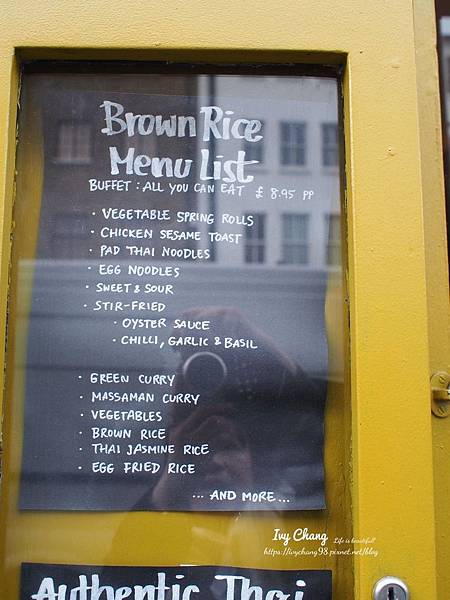 Brown Rice
Menu List
BUFFET : ALL YOU CAN EAT £ 8.95 PP
· VEGETABLE SPRING ROLLS
· CHICKEN SESAME TOAST
· PAD THAI NOODLES
· EGG NOODLES
· SWEET & SOUR
· STIR-FRIED
· OYSTER SAUCE
· CHILLI, GARLIC & BASIL
· GREEN CURRY
· MASSAMAN CURRY
· VEGETABLES
· BROWN RICE
· THAI JASMINE RICE
· EGG FRIED RICE
... AND MORE ...
Ivy Chang Life is beautiful!
https://ivychang98.pixnet.net/blog
Authentic Thai